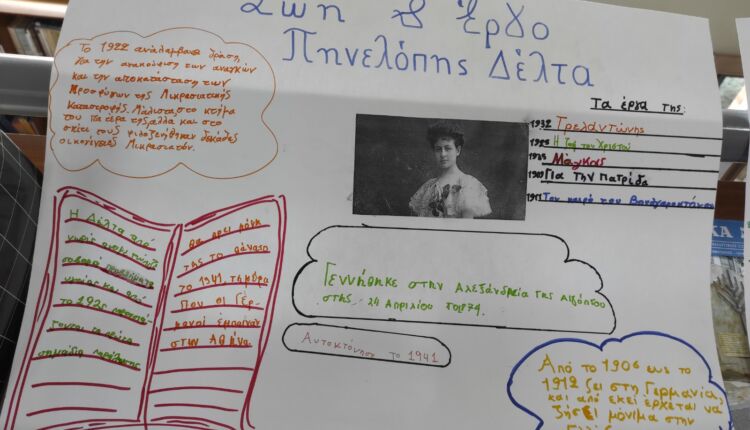 Ζωή & Έργο
Πηνελόπης Δέλτα
Το 1922 αναλαμβάνει δράση
για την ανακούφιση των αναγκών
και την αποκατάσταση των
Προσφύγων της Μικρασιατικής
Καταστροφής. Μάλιστα, στο κτήμα
του πατέρα της, αλλά και στο
σπίτι τους φιλοξενήθηκαν δεκάδες
οικογένειες Μικρασιατών.
Τα έργα της:
1932 Τρελαντώνης
1925 Η ζωή του Χριστού
1935 Μάγκας
1909 Για την Πατρίδα
1911 Τον καιρό του Βουλγαροκτόνου
Η Δέλτα από
σοβαρά προβλήματα
υγείας και από
το 1925
σημάδια παράλυσης
θα βρει μόνη
της το θάνατο
το 1941, τη μέρα
που οι Γερ-
μανοί έμπαιναν
στην Αθήνα.
Γεννήθηκε στην Αλεξάνδρεια της Αιγύπτου
στης 24 Απριλίου του 1874.
Αυτοκτόνησε το 1941
Από το 1906 εως το
1912 ζει στη Γερμανία,
και από εκεί έρχεται να
ζήσει μόνιμα στην